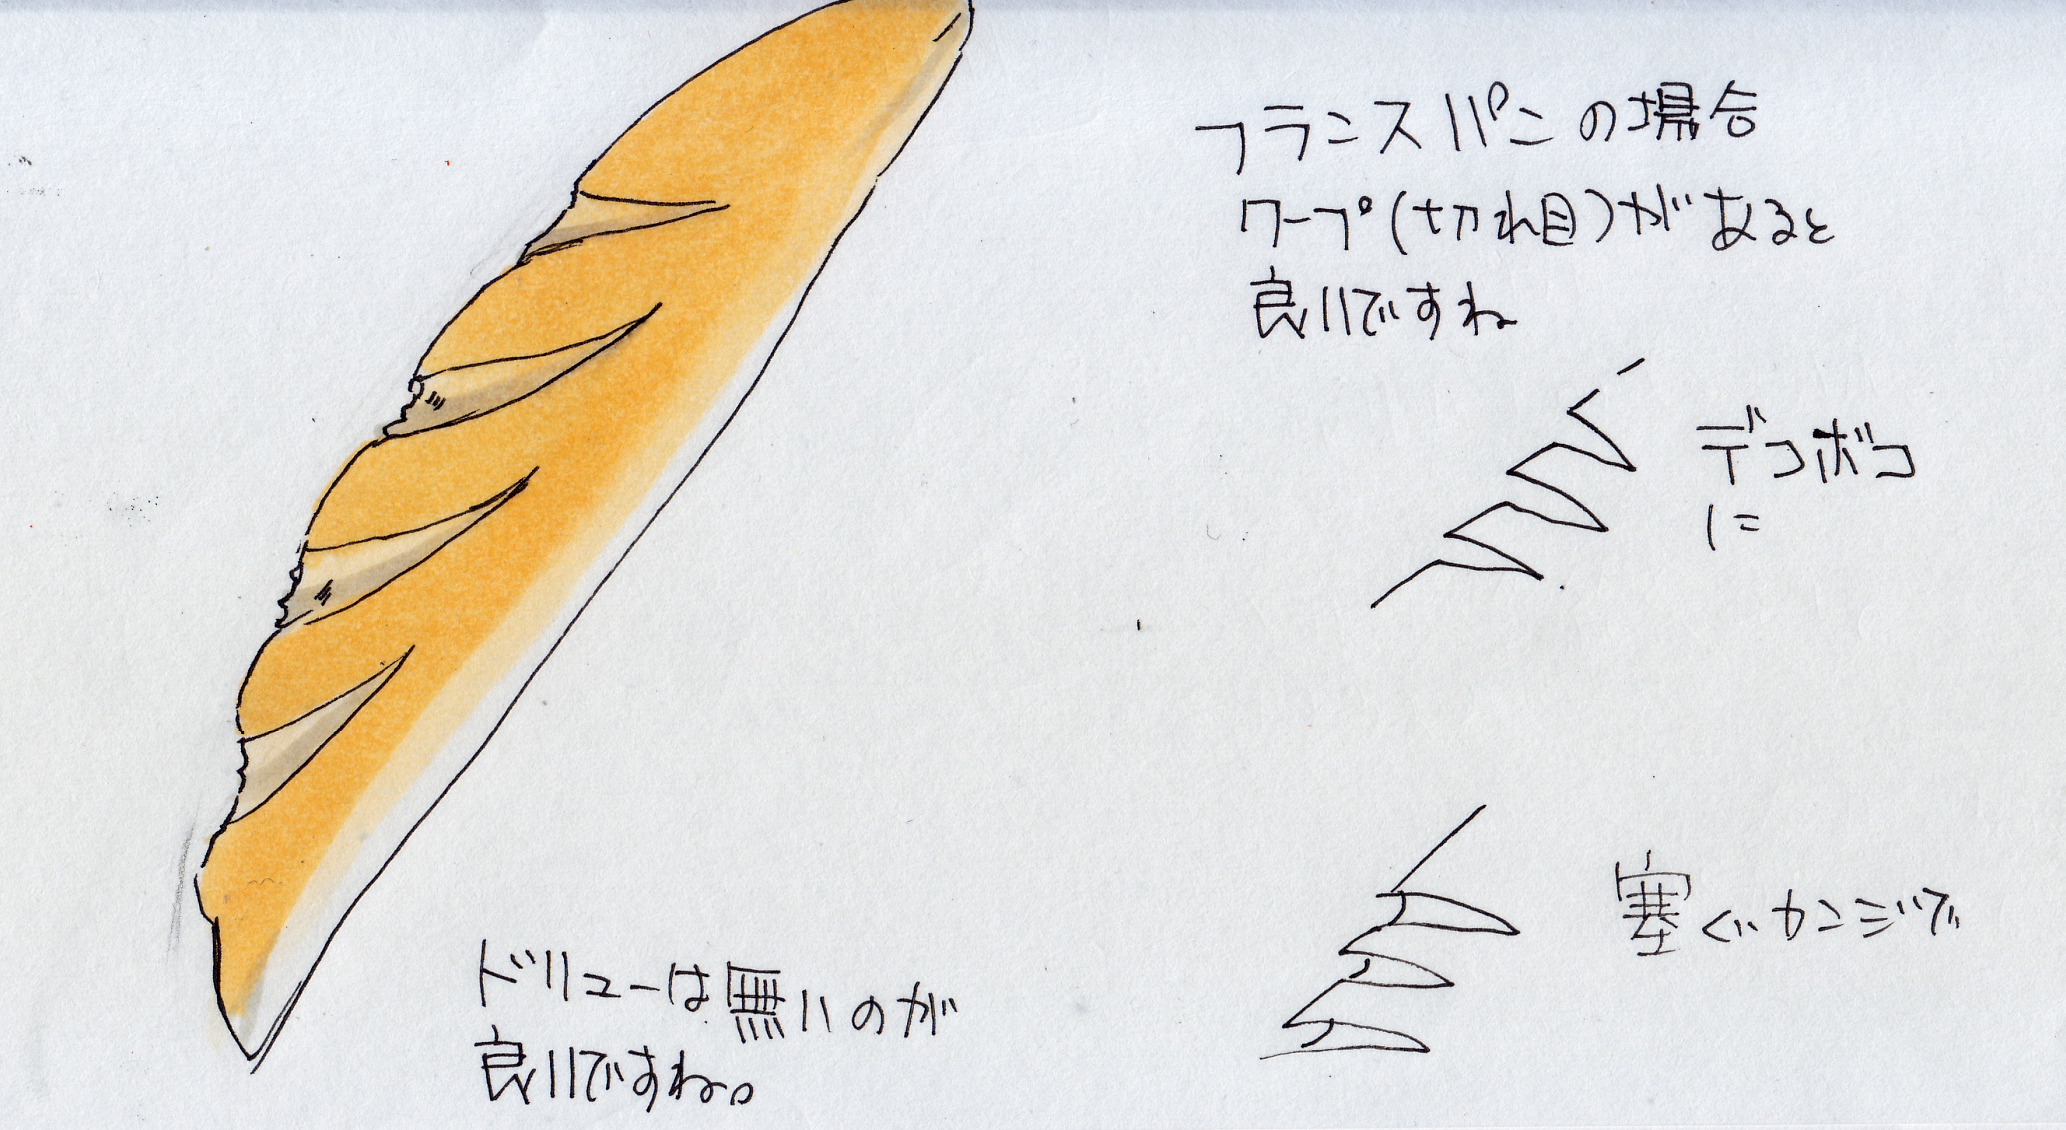 フランスパンの場合
クープ(切れ目)があると
良いですね
デコボコ
に
塞ぐカンジで
ドリューは無いのが
良いですね。